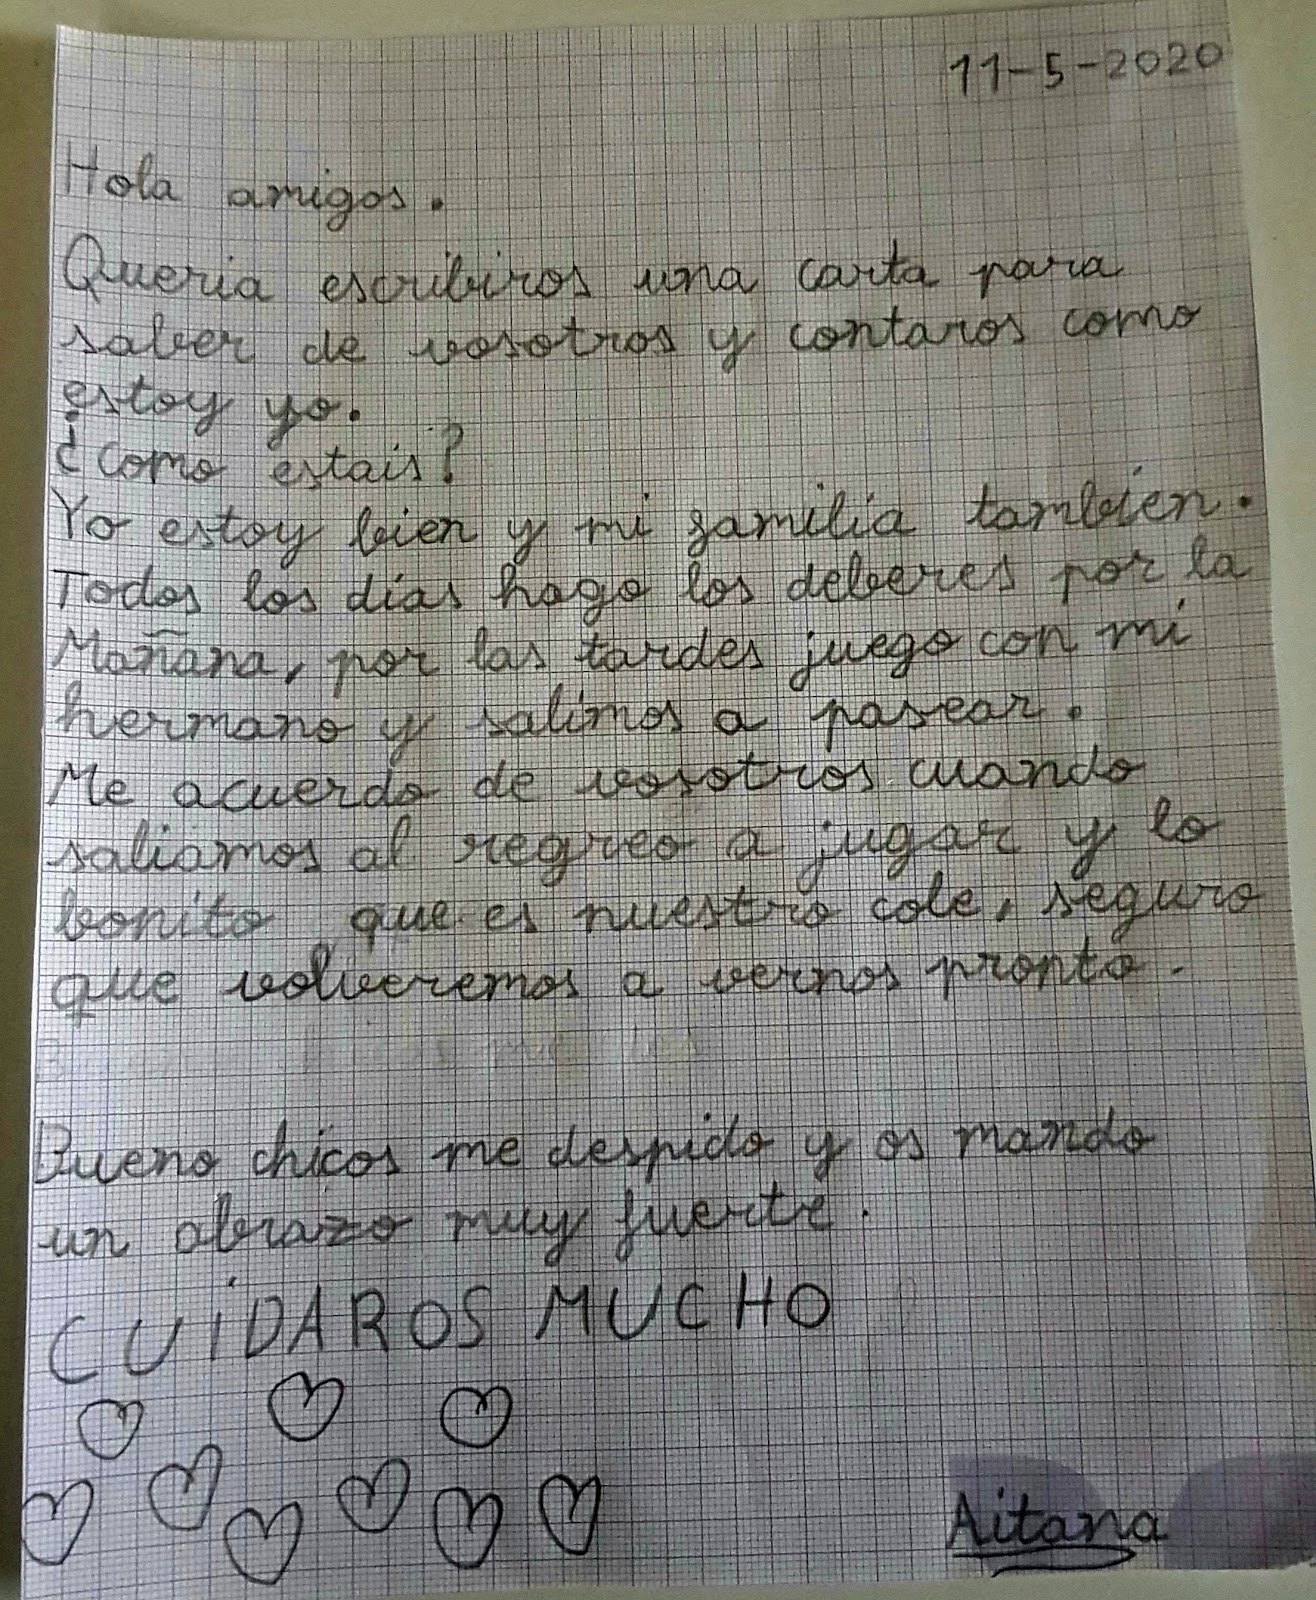 11-5-2020
Hola amigos.
Queria escribiros una carta para
saber de vosotros y contaros como
estoy yo.
¿como estais?
Yo estoy bien y mi familia tambien.
Todos los dias hago los deberes por la
Mañana, por las tardes juego con mi
hermano y salimos a pasear.
Me acuerdo de vosotros cuando
saliamos al regreo a jugar y lo
bonito que es nuestro cole, seguro
que volveremos a vernos pronto.
Bueno chicos me despido y os mando
un abrazo muy fuerte.
CUiDAROS MUCHO
Aitana